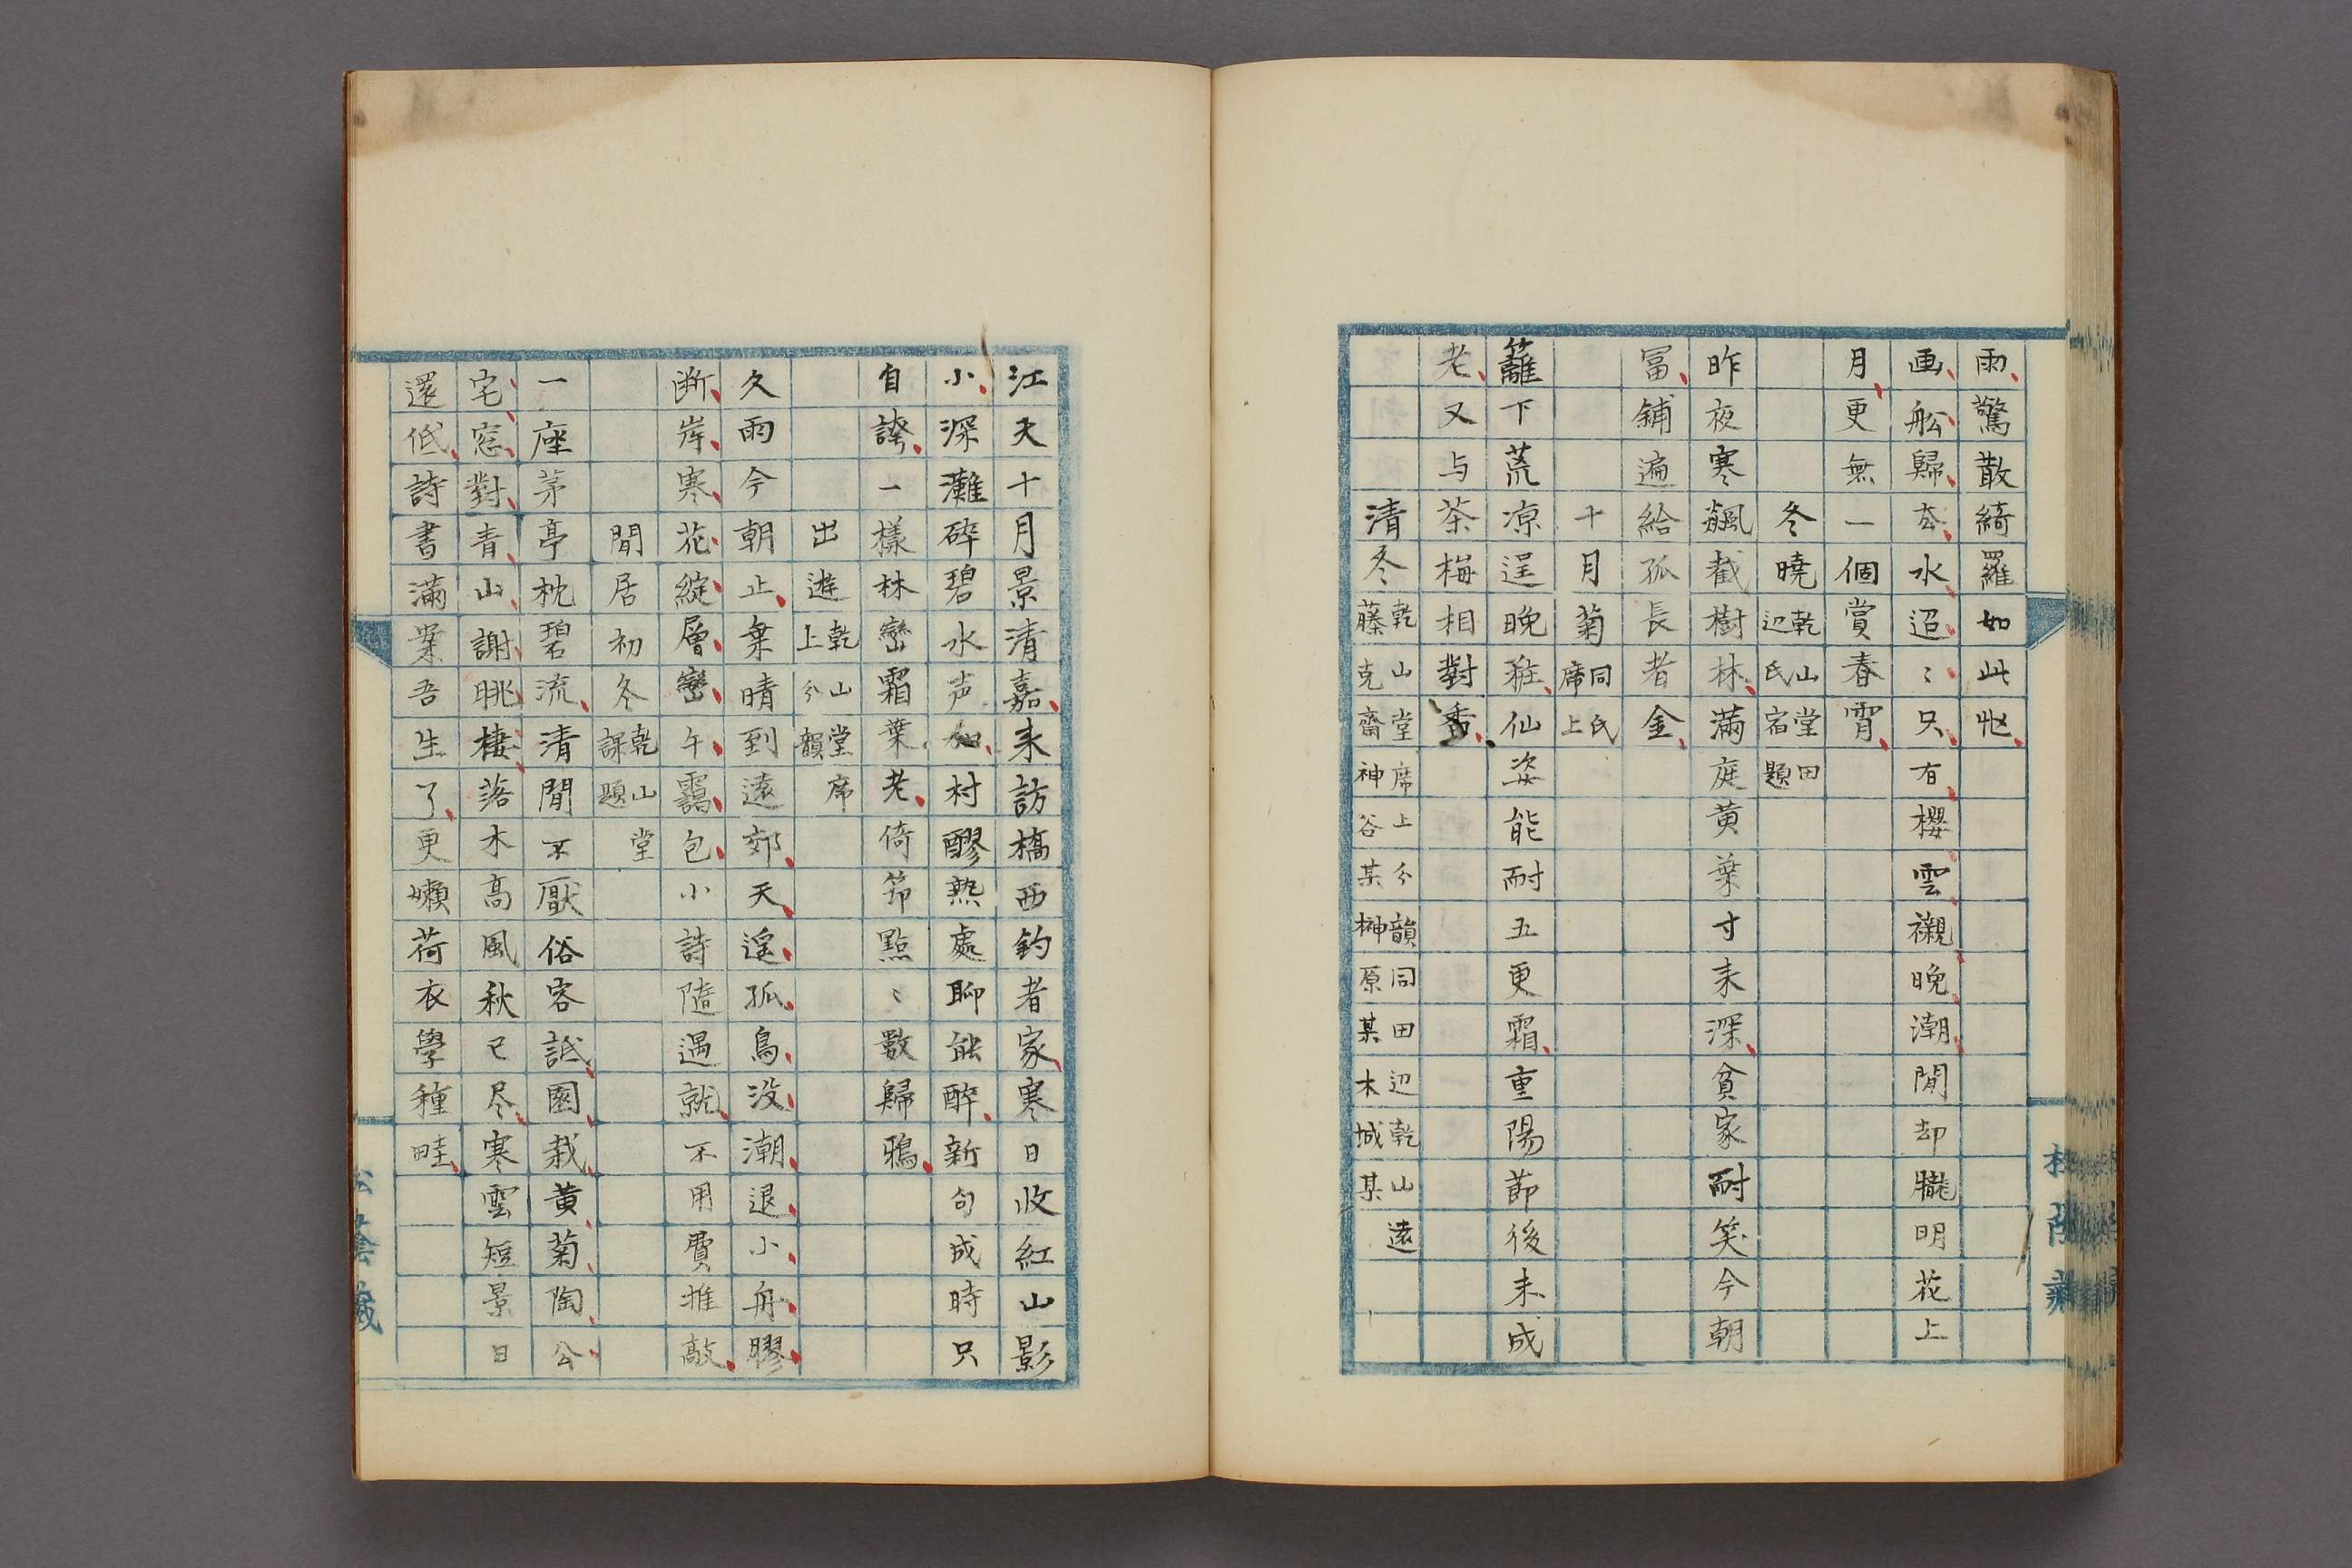 雨驚散綺羅如此
画舩歸
水迢〻只有櫻雲襯晩潮閒却朧明花上
月更無一個賞春霄
冬曉乾山堂田辺氏宿題
昨夜寒飆截樹林満庭黄葉寸来深貧家耐笑今朝
冨鋪遍給孤長者金
十月菊同氏席上
籬下荒凉逞晩粧仙姿能耐五更霜重陽節後未成
老又与茶梅相對香
清冬乾山堂席上分韻同田辺乾山遠藤克齋神谷某榊原某木城某
江天十月景清嘉来訪橋西釣者家寒日收紅山影
小深灘砕碧水声加村醪熟處聊能醉新句成時只
自誇一樣林巒霜葉老倚笻點〻數歸鴉
出遊乾山堂席上分韻
久雨今朝止棄晴到遠郊天遥孤鳥没潮退小舟膠
断岸寒花綻層巒午靄包小詩隨遇就不用費推敲
閒居初冬乾山堂課題
一座茅亭枕碧流清閒不厭俗客詆園栽黄菊陶公
宅窓對青山謝眺棲落木高風秋已尽寒雲短景日
還低詩書満案吾生了更懶荷衣學種畦